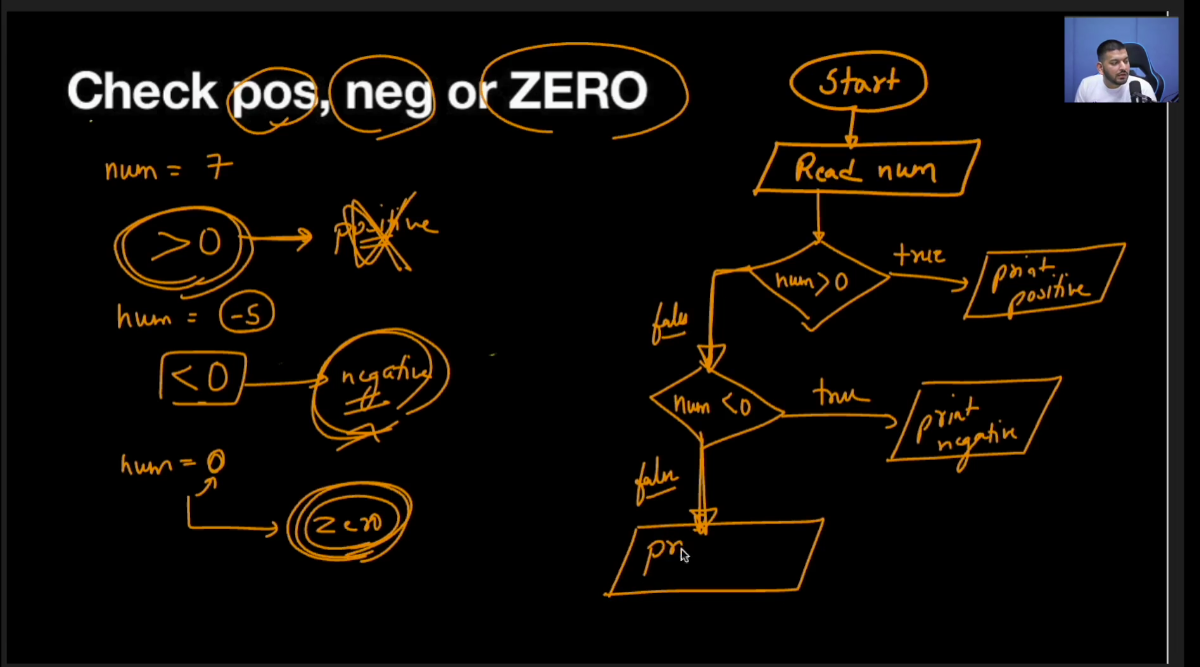 Check pos, neg or ZERO
num = 7
>0 → positive
num = -5
<0 → negative
num = 0
zero
Start
Read num
num>0
true
print
positive
false
num <0
true
print
negative
false
pr